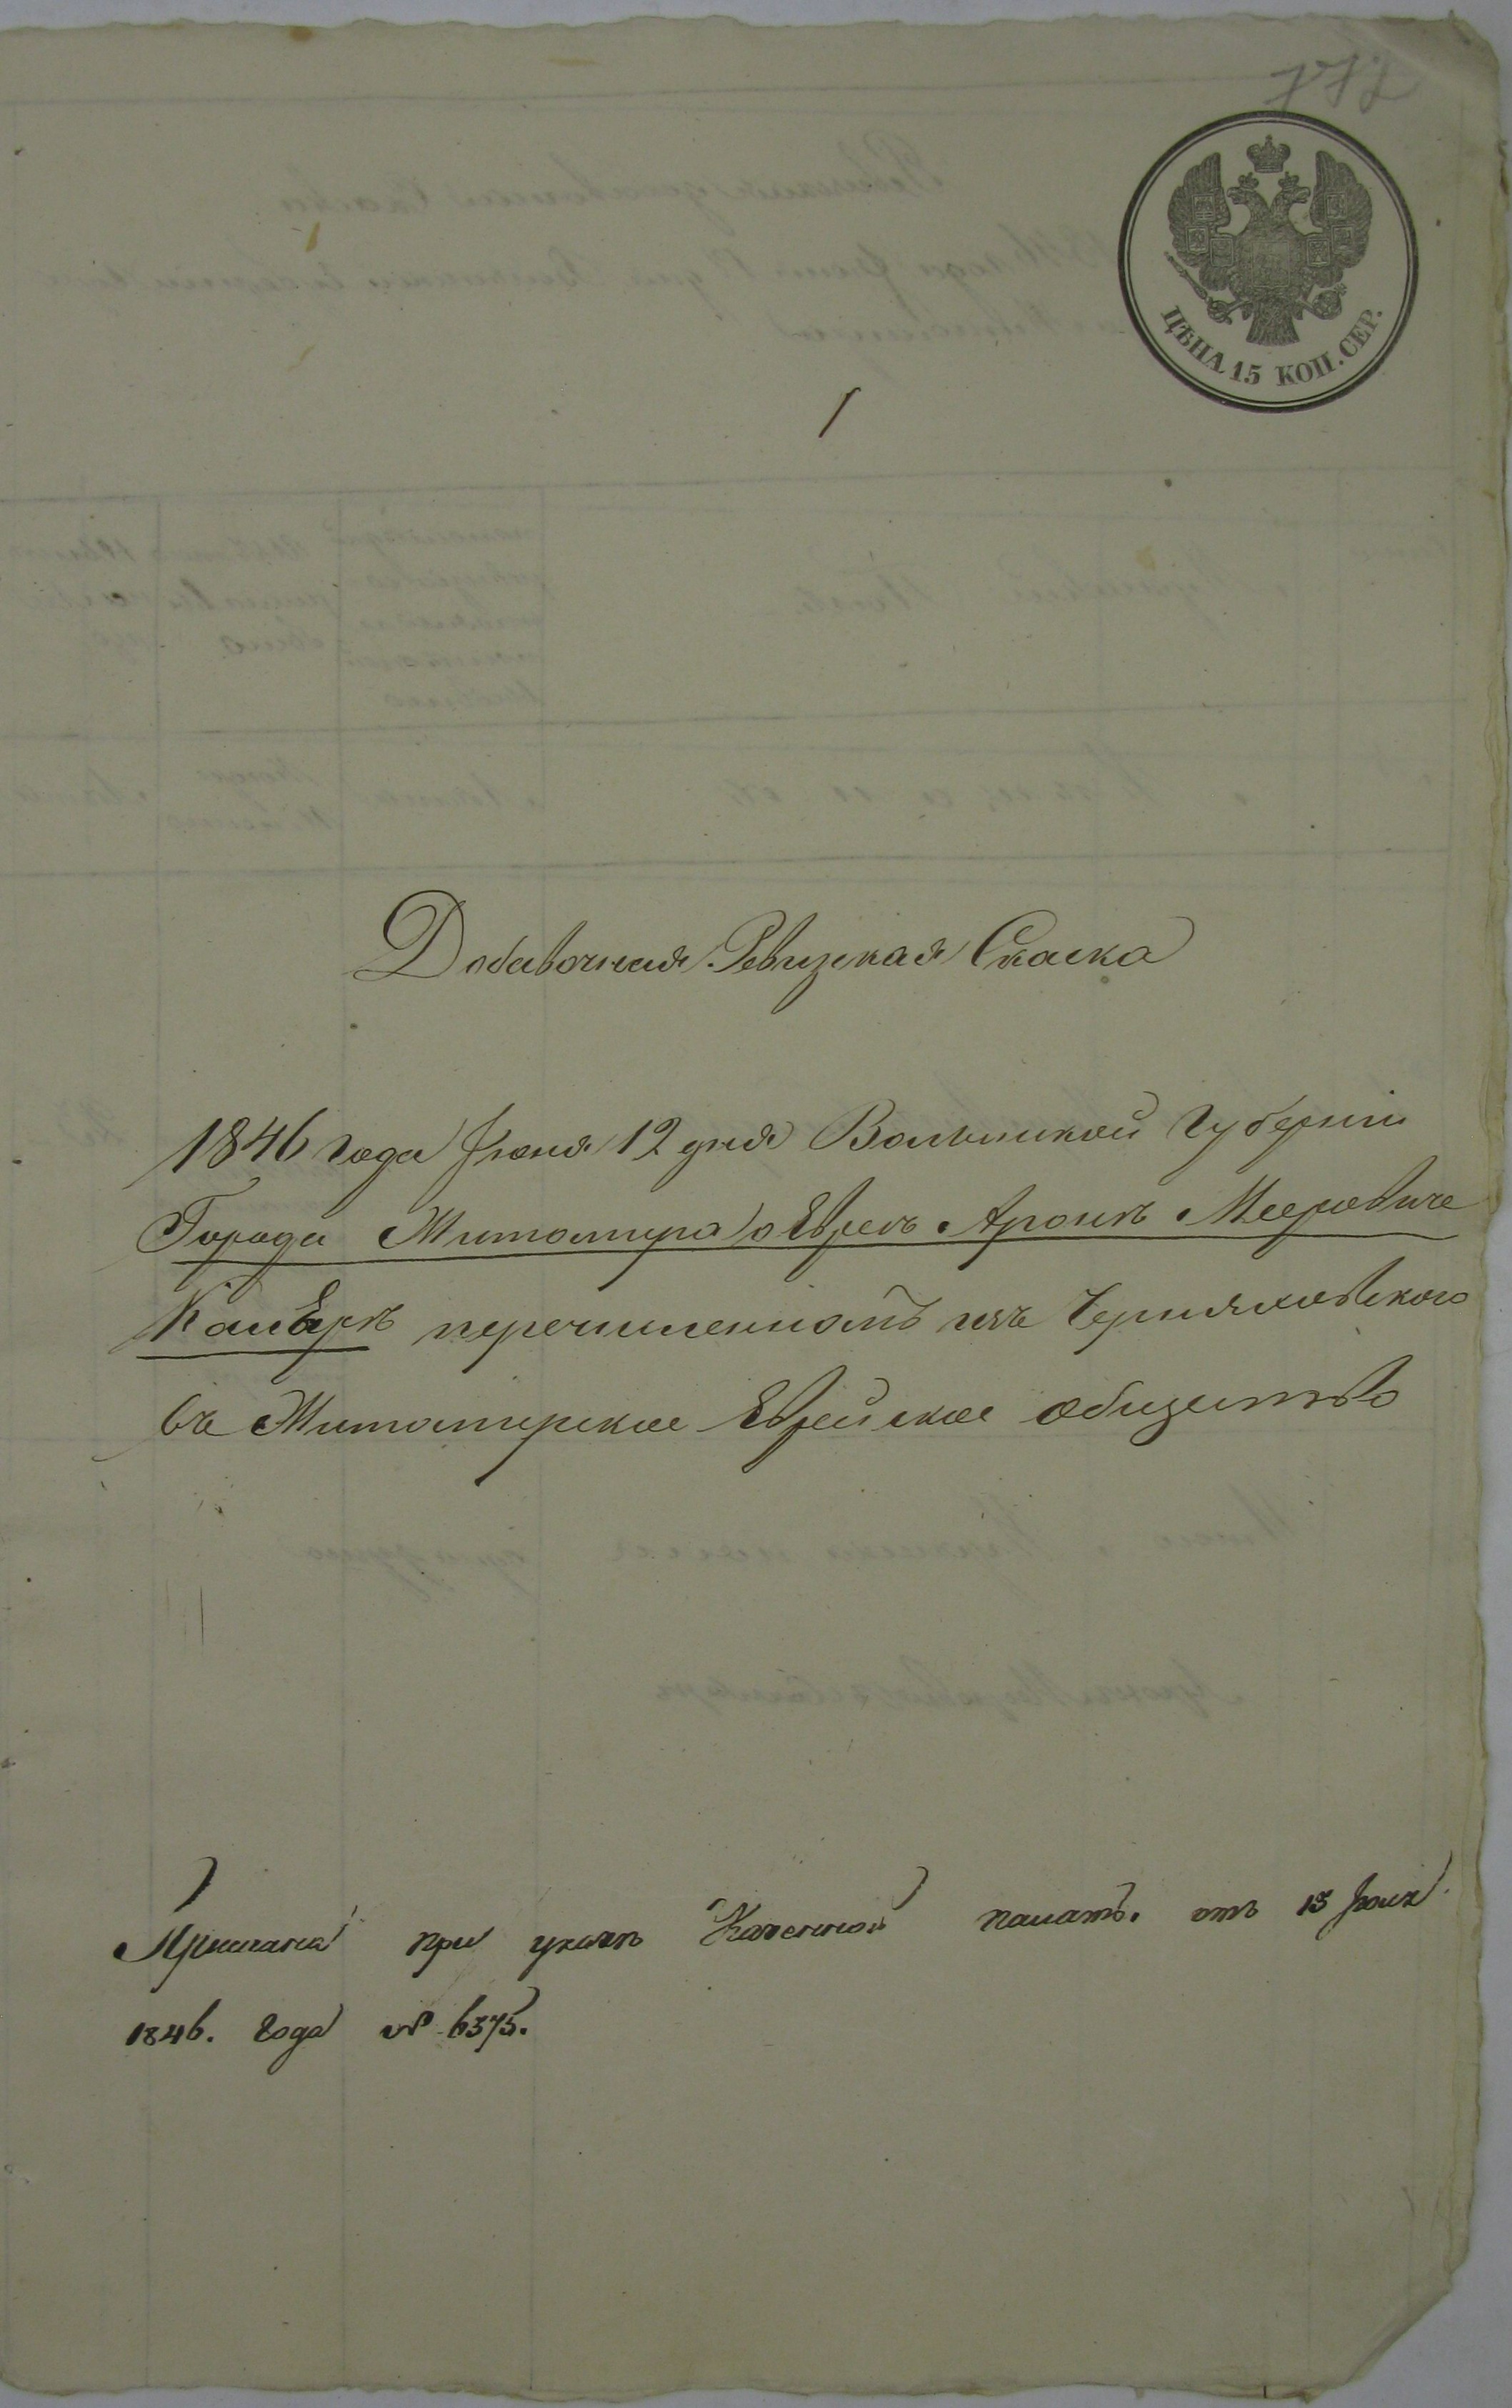 772
ЦѢНА 15 КОП. СЕР.
1
Добавочная Ревизская Скаска
1846 года Іюня 12 дня Волынской Губерніи
Города Житомира о Евреѣ Аронѣ Мееровиче
перечисленномъ изъ Черняховского
въ Житомирское Еврейское общество
Прислана при указѣ Казенной палаты отъ 13 Іюня
1846. года № 6375.